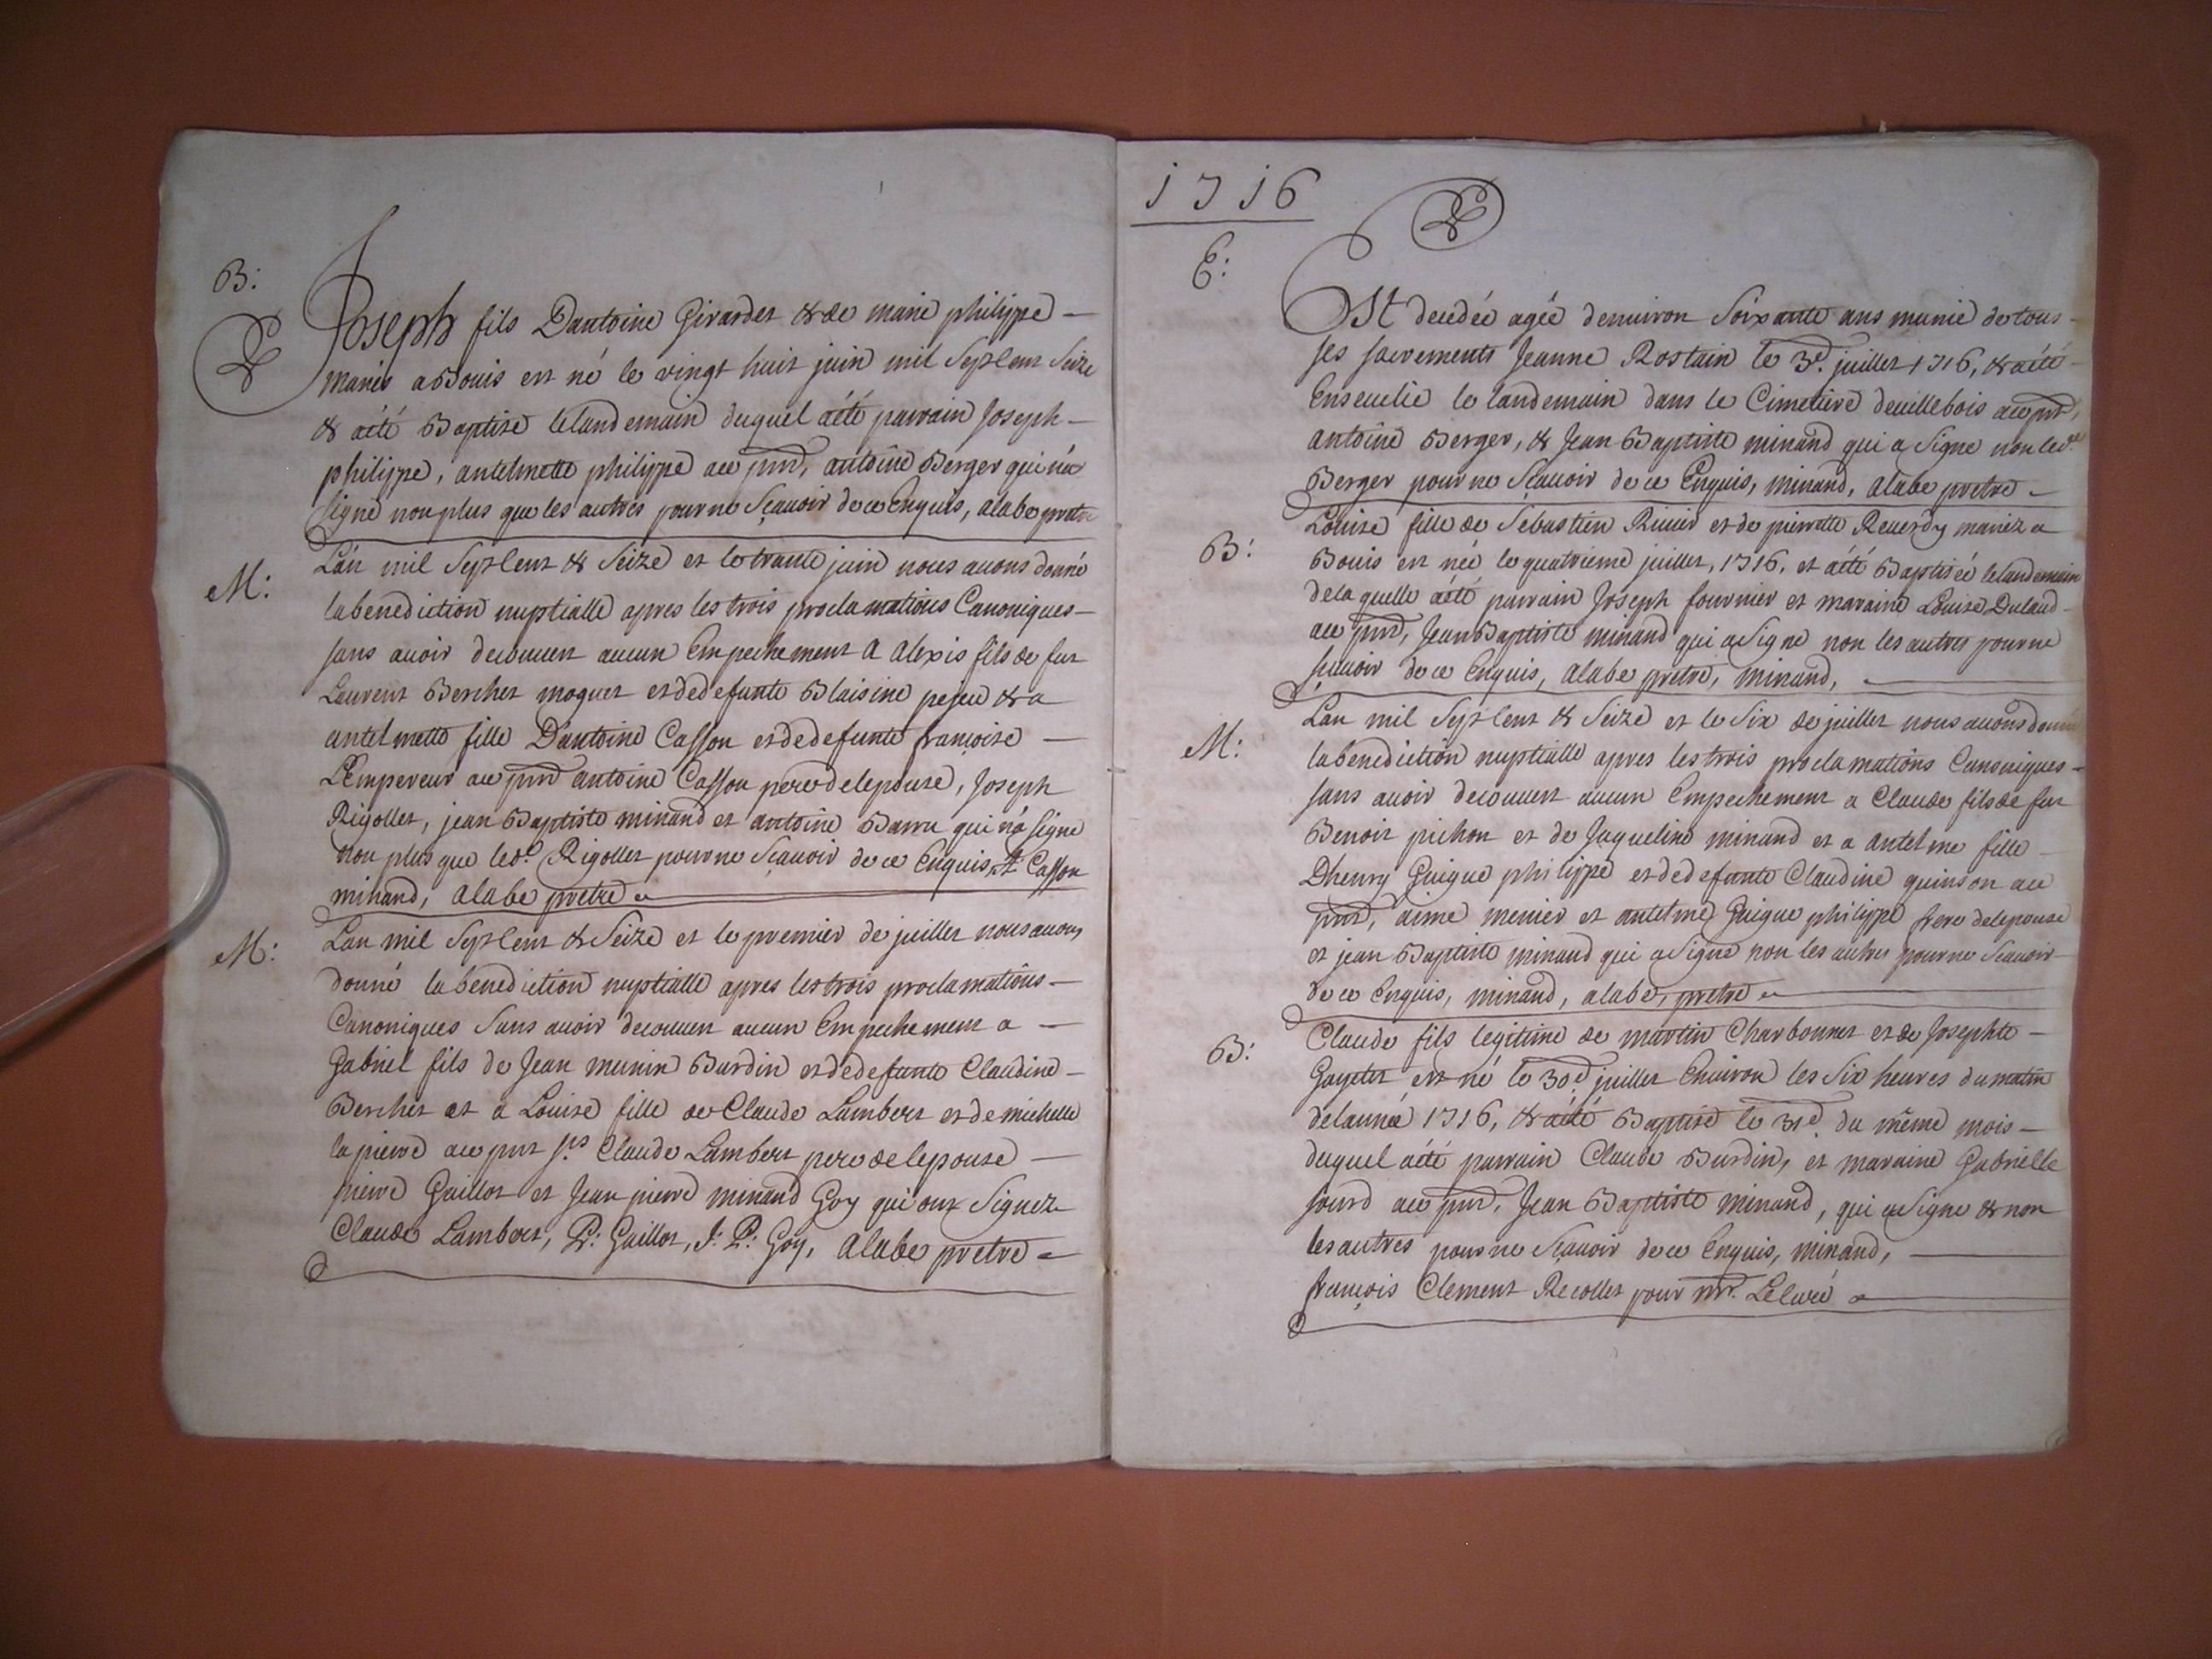 B:
Joseph fils Dantoine Girardet & de marie philippe -
mariés a Bouis est né le vingt huit juin mil Sept Cent Seize
& aété Baptisé lelandemain duquel aété parrain Joseph -
philippe, antelmette philippe au pnt, antoine Berger qui n'a
signé non plus que les autres pour ne Sçauoir de ce Enquis, alabe pretre
M:
L'an mil Sept Cent & Seize et le trante juin nous auons donné
la benediction nuptialle apres les trois proclamations Canoniques -
sans auoir decouuert aucun Empechement A Alexis fils de fut
Laurent Berchet moquet et de defunte Blaisine pejeu & a
antelmette fille D'antoine Casson et de defunte françoise -
L'Empereur au pnt antoine Casson pere de lepouse, Joseph
Rigollet, jean Baptiste minand et antoine Barru qui n'a signé
non plus que led.t Rigollet pour ne Sçauoir de ce Enquis, A Casson
minand, alabe pretre
M:
Lan mil Sept Cent & Seize et le premier de juillet nous auons
donné la benediction nuptialle apres les trois proclamations -
Canoniques Sans auoir decouuert aucun Empechement a -
Gabriel fils de Jean munin Burdin et de defunte Claudine -
Berchet et a Louise fille de Claude Lambert et de michelle
la pierre au pnt s.rs Claude Lambert pere de lepouse -
pierre Guillot et Jean pierre minand Goy qui ont Signez
Claude Lambert, P: Guillot, J: P: Goy, alabe pretre
1716
E:
Est decedée agée denuiron Soixante ans munie de tous -
ses sacrements Jeanne Rostain le 3.e juillet 1716, & aété -
Enseuelie le landemain dans le Cimetiere deuillebois au pnt,
antoine Berger, & Jean Baptiste minand qui a Signé non led.t
Berger pour ne Sçauoir de ce Enquis, minand, alabe pretre -
B:
Louise fille de Sebastien Riuier et de pierrette Reuerdy mariéz a
Bouis est née le quatrieme juillet, 1716, et aété Baptiséé lelandemain
delaquelle aété parrain Joseph fournier et maraine Louise Dulaud -
au pnt, Jean Baptiste minand qui a Signé non les autres pour ne
sçauoir de ce Enquis, alabe pretre, minand,
M:
Lan mil Sept Cent & Seize et le Six de juillet nous auons donné
la benediction nuptialle apres les trois proclamations Canoniques -
sans auoir decouuert aucun Empechement a Claude fils de fut
Benoit pichon et de Jaqueline minand et a antelme fille -
Dhenry Guigue philippe et de defunte Claudine quinson au
pnt, aimé menier et antelme Guigue philippe frere delepouse
et jean Baptiste minand qui a Signé non les autres pour ne Scauoir
de ce Enquis, minand, alabe, pretre
B:
Claude fils legitime de martin Charbonnet et de Josephte -
Goyetet est né le 30.e juillet Enuiron les Six heures du matin
de lannéé 1716, & aété Baptisé le 31.e du même mois -
duquel aété parrain Claude Burdin, et maraine Gabrielle
sourd au pnt, Jean Baptiste minand, qui a Signé & non
les autres pour ne Sçauoir de ce Enquis, minand,
françois Clement Recollet pour mr. Lecuré